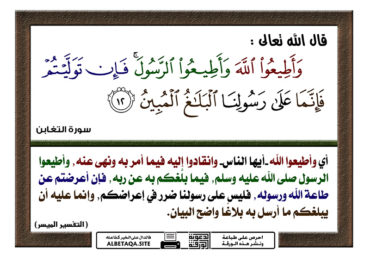 قال الله تعالى :
وَأَطِيعُوا۟ ٱللَّهَ وَأَطِيعُوا۟ ٱلرَّسُولَ ۚ فَإِن تَوَلَّيْتُمْ
فَإِنَّمَا عَلَىٰ رَسُولِنَا ٱلْبَلَٰغُ ٱلْمُبِينُ ﴿١٢﴾
سورة التغابن
أي وأطيعوا الله ـأيها الناسـ وانقادوا إليه فيما أمر به ونهى عنه, وأطيعوا
الرسول صلى الله عليه وسلم, فيما بلَّغكم به عن ربه, فإن أعرضتم عن
طاعة الله ورسوله, فليس على رسولنا ضرر في إعراضكم, وإنما عليه أن
يبلغكم ما أرسل به بلاغًا واضح البيان.
(التفسير الميسر)
احرص على طباعة
ونشر هذه الورقة
فالدال على الخير كفاعله
ALBETAQA.SITE